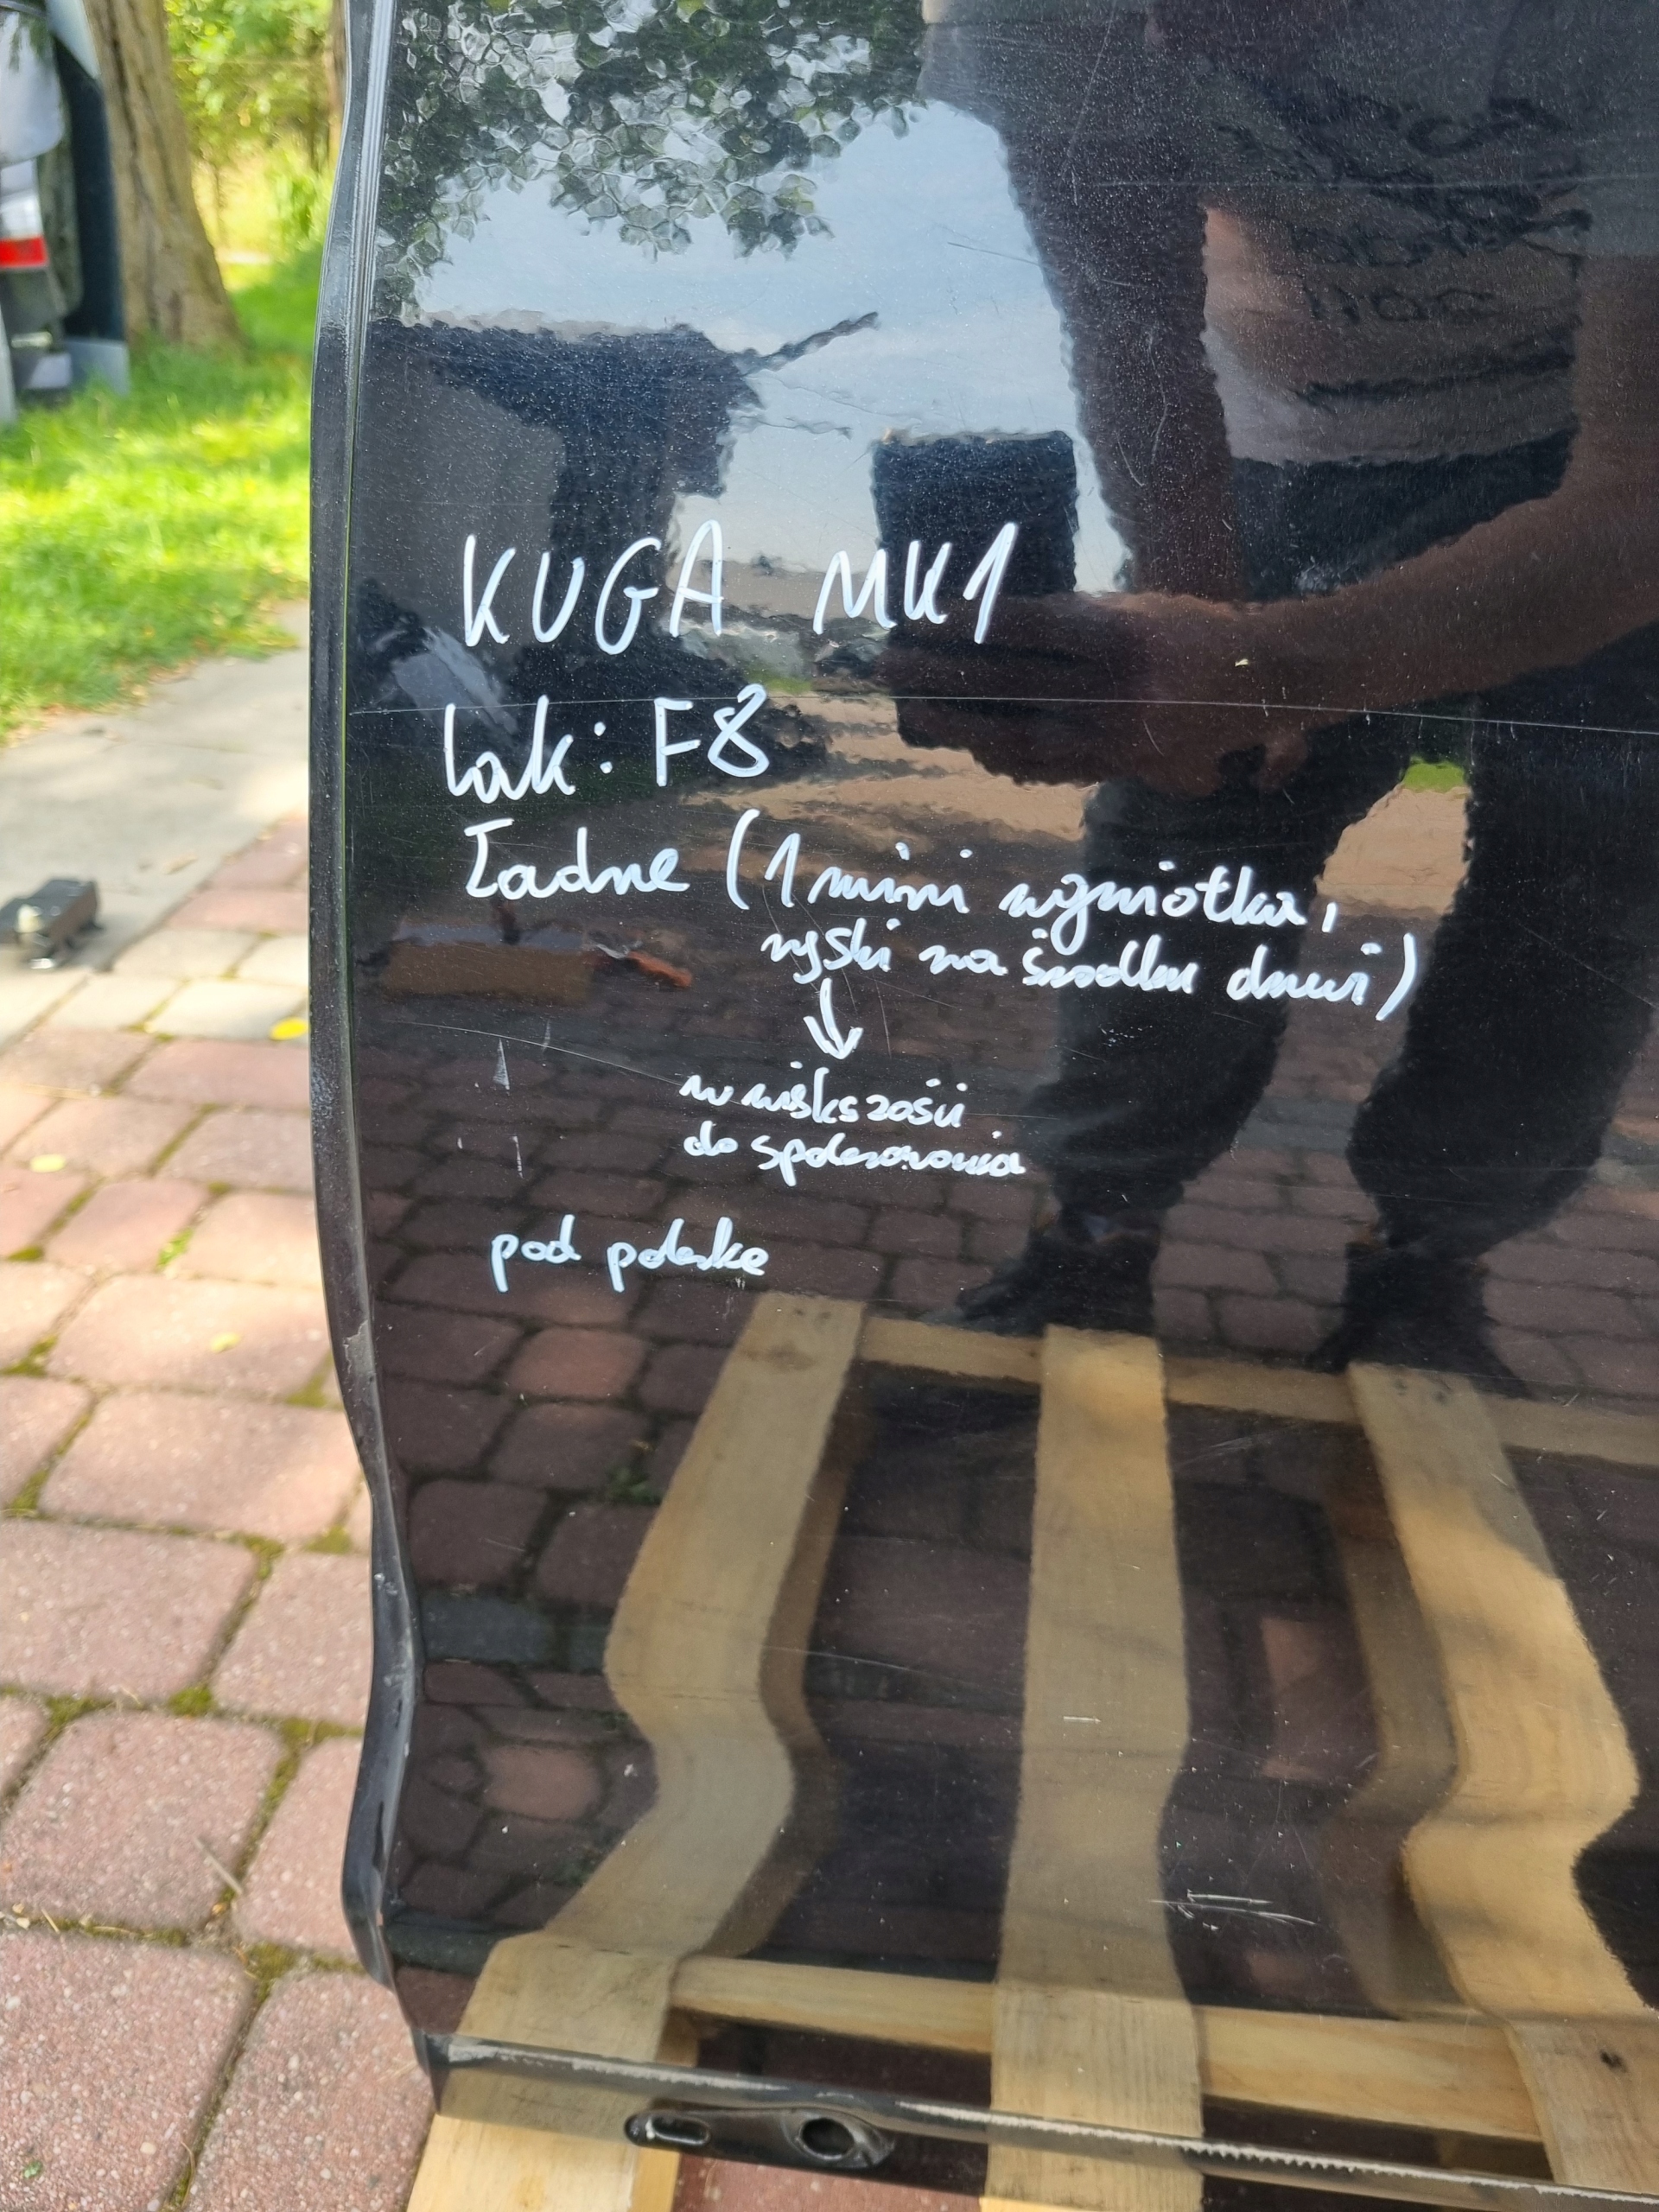 KUGA MK1
Lak: F8
Ładne (1 mini wgniotka,
ryski na środku drzwi)
↓
w większości
do spolerowania
pod polerke